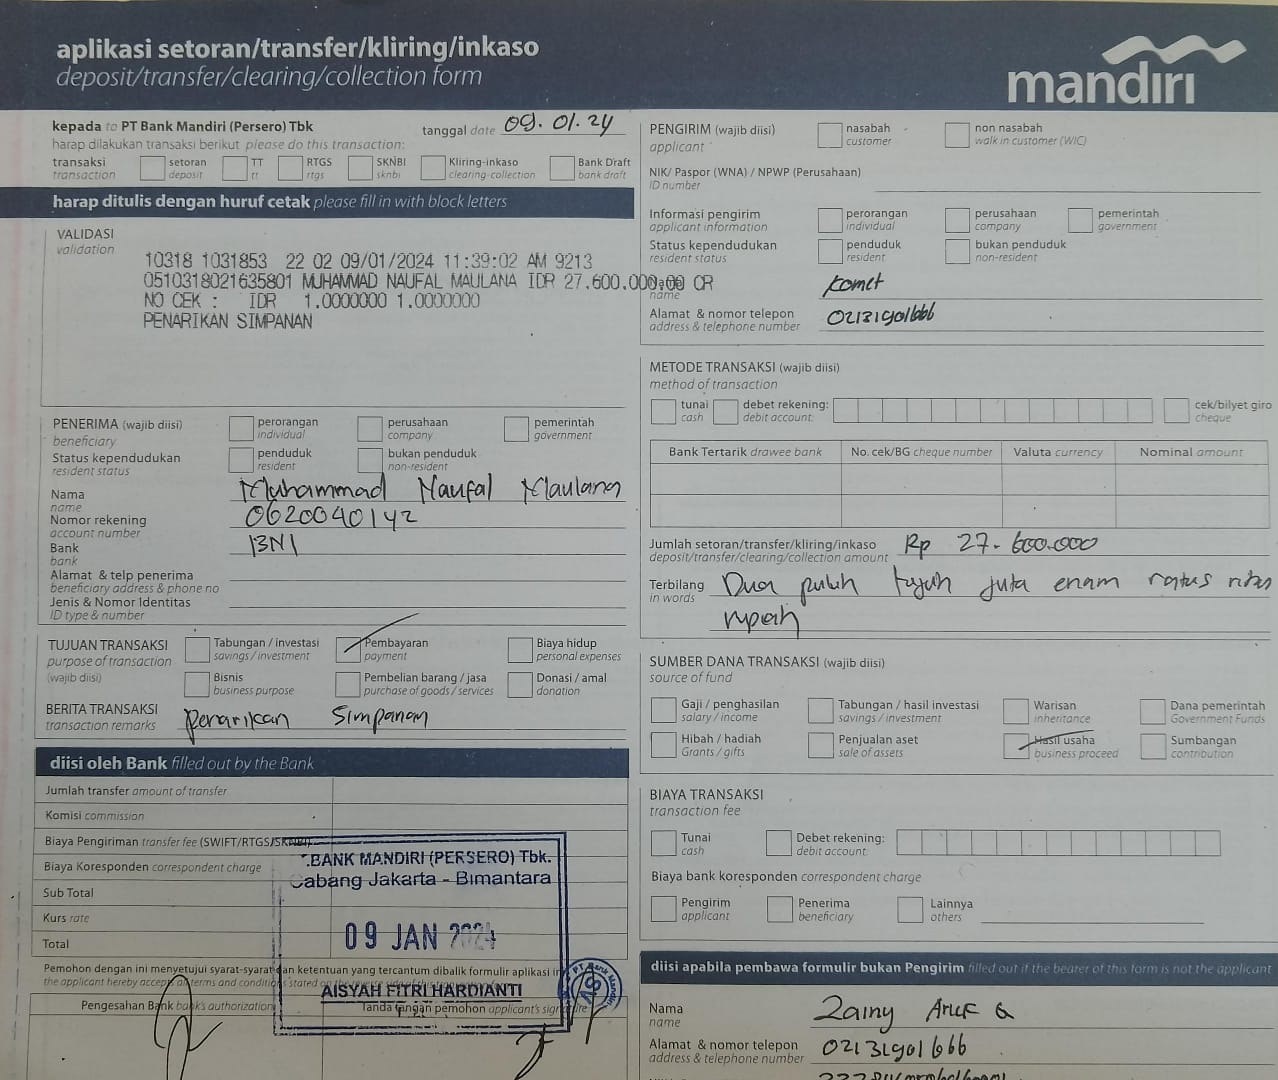 aplikasi setoran/transfer/kliring/inkaso
deposit/transfer/clearing/collection form
mandiri
kepada to PT Bank Mandiri (Persero) Tbk
tanggal date 09.01.24
harap dilakukan transaksi berikut please do this transaction:
transaksi transaction
setoran deposit
TT tt
RTGS rtgs
SKNBI sknbi
Kliring-inkaso clearing-collection
Bank Draft bank draft
harap ditulis dengan huruf cetak please fill in with block letters
VALIDASI
validation
10318 1031853 22 02 09/01/2024 11:39:02 AM 9213
0510318021635801 MUHAMMAD NAUFAL MAULANA IDR 27.600.000.00 CR
NO CEK : IDR 1.0000000 1.0000000
PENARIKAN SIMPANAN
PENERIMA (wajib diisi)
beneficiary
perorangan individual
perusahaan company
pemerintah government
Status kependudukan
resident status
penduduk resident
bukan penduduk non-resident
Nama Muhammad Naufal Maulana
name
Nomor rekening 0620040142
account number
Bank BNI
bank
Alamat & telp penerima
beneficiary address & phone no
Jenis & Nomor Identitas
ID type & number
TUJUAN TRANSAKSI
purpose of transaction
(wajib diisi)
Tabungan / investasi savings / investment
Pembayaran payment
Biaya hidup personal expenses
Bisnis business purpose
Pembelian barang / jasa purchase of goods / services
Donasi / amal donation
BERITA TRANSAKSI
transaction remarks
Penarikan Simpanan
diisi oleh Bank filled out by the Bank
Jumlah transfer amount of transfer
Komisi commission
Biaya Pengiriman transfer fee (SWIFT/RTGS/SKNBI)
Biaya Koresponden correspondent charge
Sub Total
Kurs rate
Total
BANK MANDIRI (PERSERO) Tbk.
Cabang Jakarta - Bimantara
09 JAN 2024
AISYAH FITRI HARDIANTI
Pemohon dengan ini menyetujui syarat-syarat dan ketentuan yang tercantum dibalik formulir aplikasi
the applicant hereby accept terms and conditions stated
Pengesahan Bank bank's authorization
Tanda tangan pemohon applicant's signature
PENGIRIM (wajib diisi)
applicant
nasabah customer
non nasabah walk in customer (WIC)
NIK/ Paspor (WNA) / NPWP (Perusahaan)
ID number
Informasi pengirim
applicant information
perorangan individual
perusahaan company
pemerintah government
Status kependudukan
resident status
penduduk resident
bukan penduduk non-resident
name Komet
Alamat & nomor telepon 02131901666
address & telephone number
METODE TRANSAKSI (wajib diisi)
method of transaction
tunai cash
debet rekening: debit account:
cek/bilyet giro cheque
Bank Tertarik drawee bank
No. cek/BG cheque number
Valuta currency
Nominal amount
Jumlah setoran/transfer/kliring/inkaso Rp 27.600.000
deposit/transfer/clearing/collection amount
Terbilang Dua puluh tujuh juta enam ratus ribu
in words
rupiah
SUMBER DANA TRANSAKSI (wajib diisi)
source of fund
Gaji / penghasilan salary / income
Tabungan / hasil investasi savings / investment
Warisan inheritance
Dana pemerintah Government Funds
Hibah / hadiah Grants / gifts
Penjualan aset sale of assets
Hasil usaha business proceed
Sumbangan contribution
BIAYA TRANSAKSI
transaction fee
Tunai cash
Debet rekening: debit account:
Biaya bank koresponden correspondent charge
Pengirim applicant
Penerima beneficiary
Lainnya others
diisi apabila pembawa formulir bukan Pengirim filled out if the bearer of this form is not the applicant
Nama Zainy Arief
name
Alamat & nomor telepon 02131901666
address & telephone number